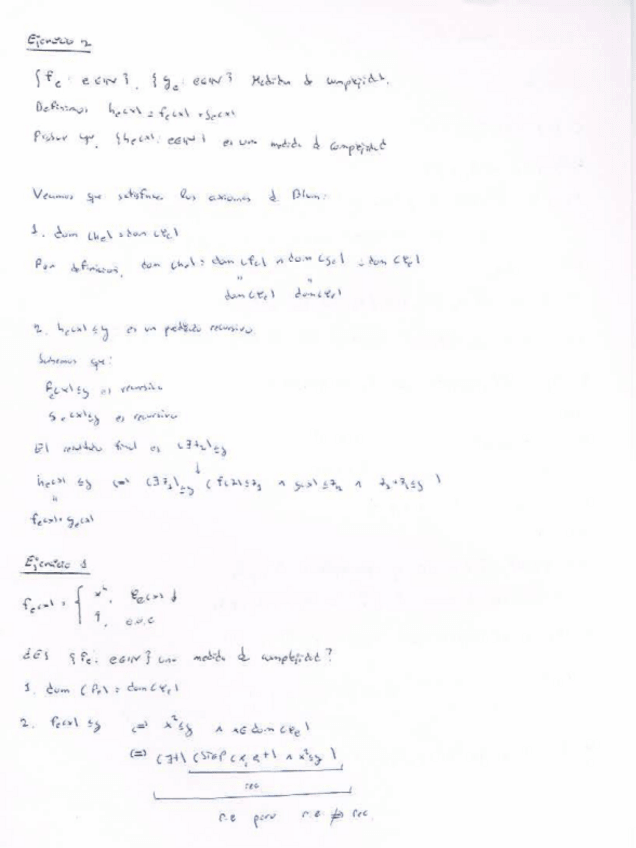 Ejercicio 2
{f_e : e∈ℕ}, {g_e : e∈ℕ} Medidas de complejidad.
Definimos h_e(x) = f_e(x) + g_e(x)
Probar que, {h_e(x) : e∈ℕ} es una medida de complejidad
Veamos que satisface los axiomas de Blum:
1. dom(h_e) = dom(φ_e)
Por definición, dom(h_e) = dom(f_e) ∩ dom(g_e) = dom(φ_e)
" "
dom(φ_e) dom(φ_e)
2. h_e(x) ≤ y es un predicado recursivo.
Sabemos que:
f_e(x) ≤ y es recursivo
g_e(x) ≤ y es recursivo
El resultado final es (∃z_2)≤y
↓
h_e(x) ≤ y ⟺ (∃z_1)≤y ( f(x) ≤ z_1 ∧ g(x) ≤ z_2 ∧ z_1+z_2 ≤ y )
"
f_e(x) + g_e(x)
Ejercicio 1
f_e(x) = { x², φ_e(x)↓
↑, e.o.c
¿Es {f_e : e∈ℕ} una medida de complejidad?
1. dom(f_e) = dom(φ_e)
2. f_e(x) ≤ y ⟺ x² ≤ y ∧ x ∈ dom(φ_e)
⟺ (∃t) (STEP(x, e, t) ∧ x² ≤ y)
rec
r.e pero r.e ⇏ rec.